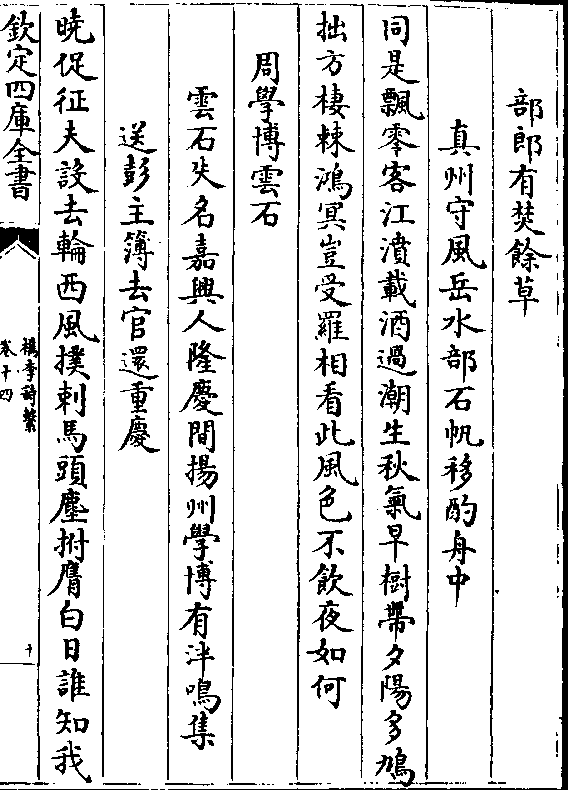 部郎有焚餘草
真州守風岳水部石帆移酌舟中
同是飄零客江濆載酒過潮生秋氣早樹帶夕陽多鳩
拙方棲棘鴻冥豈受羅相看此風色不飲夜如何
周學博雲石
雲石失名嘉興人隆慶間揚州學博有泮鳴集
送彭主簿去官還重慶
曉促征夫設去輪西風撲刺馬頭塵拊膺白日誰知我
欽定四庫全書
檇李詩繫
卷十四
十